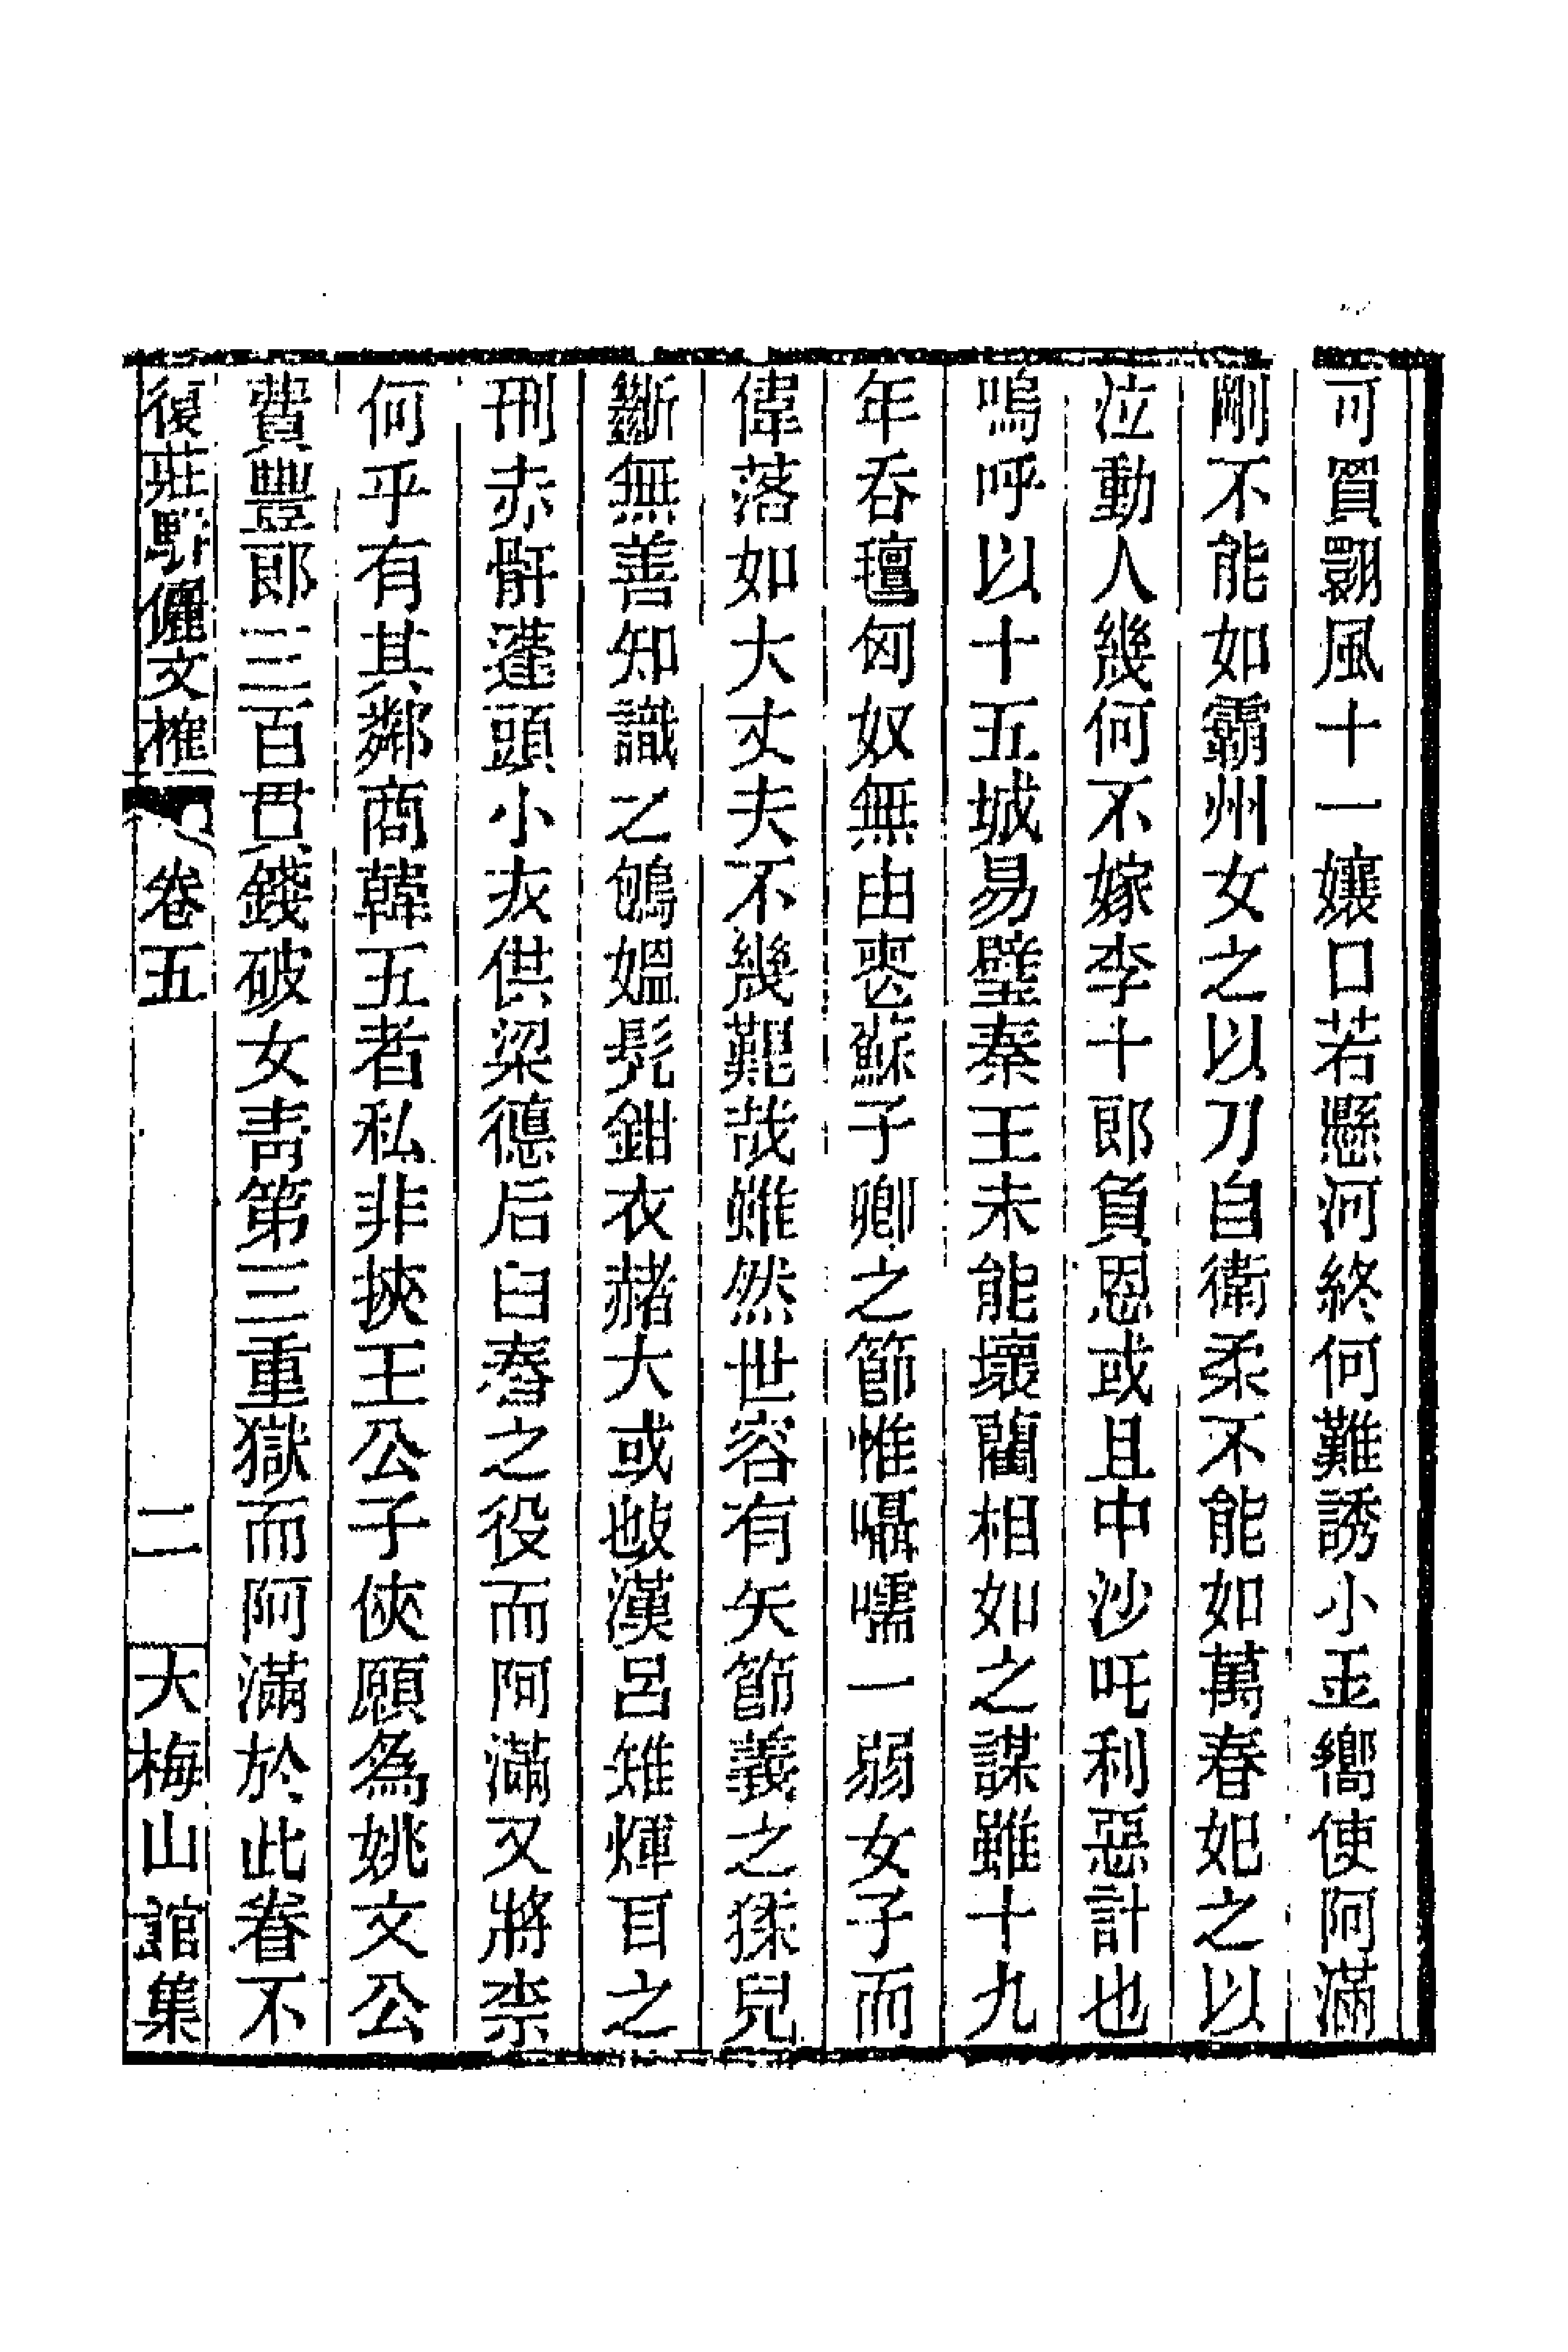 可買翾風十一孃口若懸河終何難誘小玉嚮使阿滿
剛不能如霸州女之以刀自衛柔不能如萬春妃之以
泣動人幾何不嫁李十郎負恩或且中沙吒利惡計也
嗚呼以十五城易璧秦王未能壞藺相如之謀雖十九
年吞氊匈奴無由喪蘇子卿之節惟囁嚅一弱女子而
偉落如大丈夫不幾難哉雖然世容有矢節義之猱兒
斷無善知識之鴇媼髡鉗衣赭大或敺漢呂雉煇耳之
刑赤骭蓬頭小亦供梁德后臼舂之役而阿滿又將柰
何乎有其鄰商韓五者私非挾王公子俠願為姚文公
費豐郎三百貫錢破女青第三重獄而阿滿於此眷不
復莊駢儷文榷 卷五 二 大梅山館集